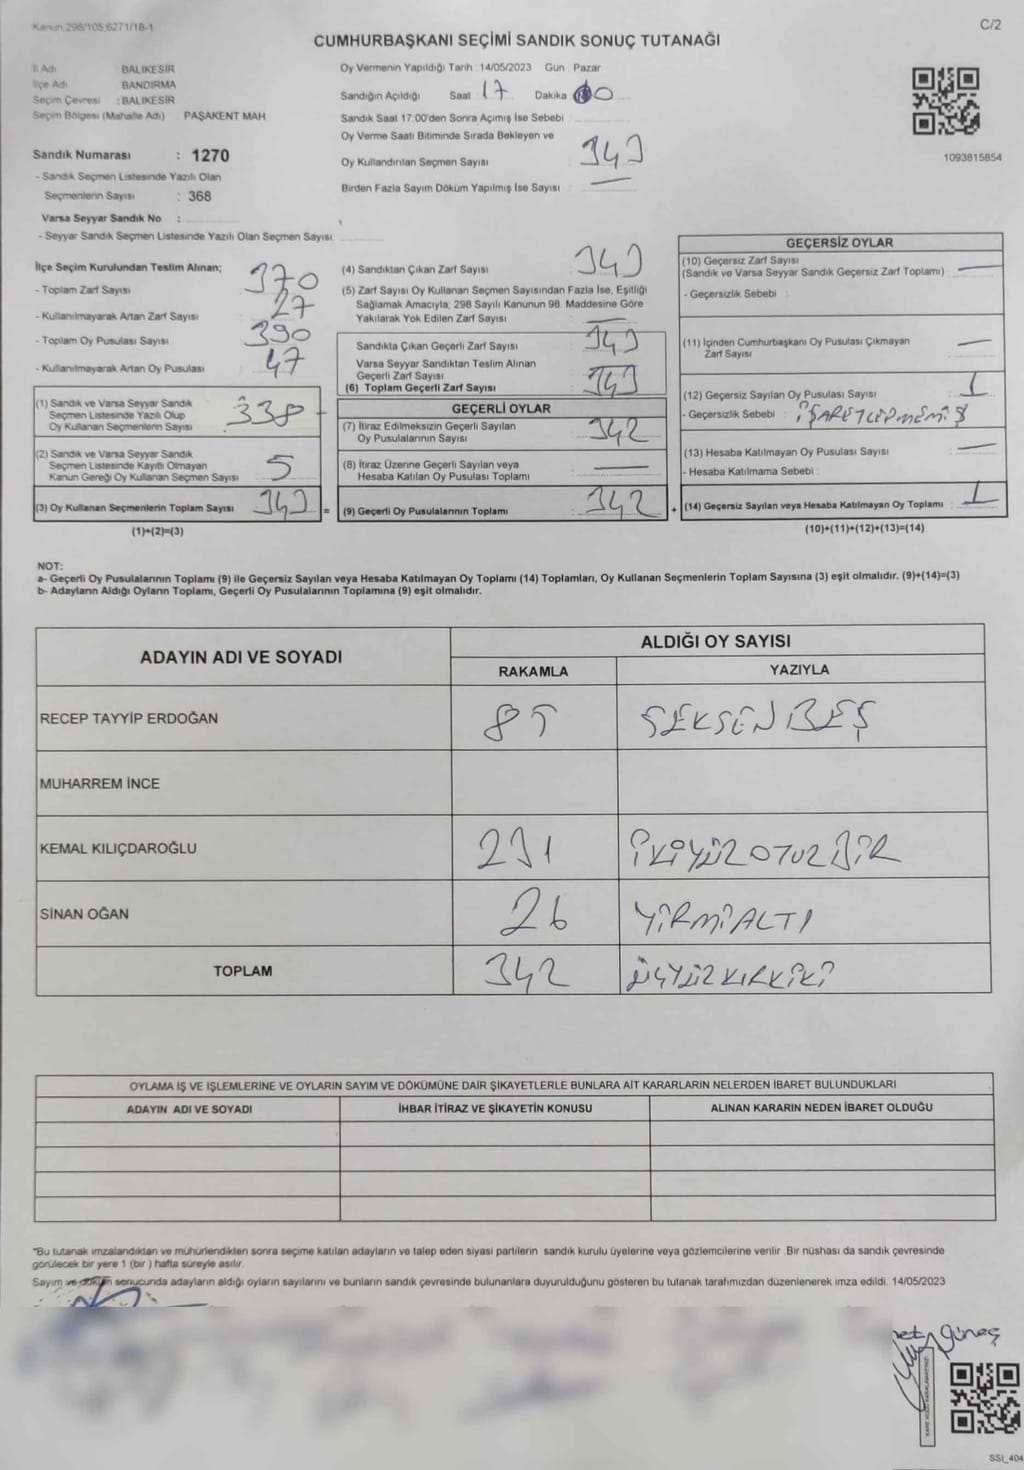 Kanun 298/105,6271/18-1
C/2
CUMHURBAŞKANI SEÇİMİ SANDIK SONUÇ TUTANAĞI
İl Adı BALIKESİR
İlçe Adı BANDIRMA
Seçim Çevresi : BALIKESİR
Seçim Bölgesi (Mahalle Adı) : PAŞAKENT MAH
Sandık Numarası : 1270
- Sandık Seçmen Listesinde Yazılı Olan
Seçmenlerin Sayısı : 368
Varsa Seyyar Sandık No :
- Seyyar Sandık Seçmen Listesinde Yazılı Olan Seçmen Sayısı:
Oy Vermenin Yapıldığı Tarih : 14/05/2023 Gün : Pazar
Sandığın Açıldığı Saat 17 Dakika 00
Sandık Saat 17:00'den Sonra Açımış İse Sebebi :
Oy Verme Saati Bitiminde Sırada Bekleyen ve
Oy Kullandırılan Seçmen Sayısı : 343
Birden Fazla Sayım Döküm Yapılmış İse Sayısı : —
1093815854
İlçe Seçim Kurulundan Teslim Alınan;
- Toplam Zarf Sayısı 370
- Kullanılmayarak Artan Zarf Sayısı 27
- Toplam Oy Pusulası Sayısı 390
- Kullanılmayarak Artan Oy Pusulası 47
(1) Sandık ve Varsa Seyyar Sandık
Seçmen Listesinde Yazılı Olup
Oy Kullanan Seçmenlerin Sayısı : 338
(2) Sandık ve Varsa Seyyar Sandık
Seçmen Listesinde Kayıtlı Olmayan
Kanun Gereği Oy Kullanan Seçmen Sayısı : 5
(3) Oy Kullanan Seçmenlerin Toplam Sayısı : 343
(1)+(2)=(3)
(4) Sandıktan Çıkan Zarf Sayısı : 343
(5) Zarf Sayısı Oy Kullanan Seçmen Sayısından Fazla İse, Eşitliği
Sağlamak Amacıyla; 298 Sayılı Kanunun 98. Maddesine Göre
Yakılarak Yok Edilen Zarf Sayısı : —
Sandıkla Çıkan Geçerli Zarf Sayısı : 343
Varsa Seyyar Sandıktan Teslim Alınan
Geçerli Zarf Sayısı
(6) Toplam Geçerli Zarf Sayısı : 343
GEÇERLİ OYLAR
(7) İtiraz Edilmeksizin Geçerli Sayılan
Oy Pusulalarının Sayısı : 342
(8) İtiraz Üzerine Geçerli Sayılan veya
Hesaba Katılan Oy Pusulası Toplamı : —
= (9) Geçerli Oy Pusulalarının Toplamı : 342
GEÇERSİZ OYLAR
(10) Geçersiz Zarf Sayısı
(Sandık ve Varsa Seyyar Sandık Geçersiz Zarf Toplamı) : —
- Geçersizlik Sebebi :
(11) İçinden Cumhurbaşkanı Oy Pusulası Çıkmayan
Zarf Sayısı : —
(12) Geçersiz Sayılan Oy Pusulası Sayısı : 1
- Geçersizlik Sebebi : İŞARETLEPMEMİŞ
(13) Hesaba Katılmayan Oy Pusulası Sayısı : —
- Hesaba Katılmama Sebebi :
+ (14) Geçersiz Sayılan veya Hesaba Katılmayan Oy Toplamı : 1
(10)+(11)+(12)+(13)=(14)
NOT:
a- Geçerli Oy Pusulalarının Toplamı (9) ile Geçersiz Sayılan veya Hesaba Katılmayan Oy Toplamı (14) Toplamları, Oy Kullanan Seçmenlerin Toplam Sayısına (3) eşit olmalıdır. (9)+(14)=(3)
b- Adayların Aldığı Oyların Toplamı, Geçerli Oy Pusulalarının Toplamına (9) eşit olmalıdır.
ADAYIN ADI VE SOYADI ALDIĞI OY SAYISI
RAKAMLA YAZIYLA
RECEP TAYYİP ERDOĞAN 85 SEKSENBEŞ
MUHARREM İNCE
KEMAL KILIÇDAROĞLU 231 İKİYÜZOTUZBİR
SİNAN OĞAN 26 YİRMİALTI
TOPLAM 342 ÜÇYÜZKIRKİKİ
OYLAMA İŞ VE İŞLEMLERİNE VE OYLARIN SAYIM VE DÖKÜMÜNE DAİR ŞİKAYETLERLE BUNLARA AİT KARARLARIN NELERDEN İBARET BULUNDUKLARI
ADAYIN ADI VE SOYADI İHBAR İTİRAZ VE ŞİKAYETİN KONUSU ALINAN KARARIN NEDEN İBARET OLDUĞU
*Bu tutanak imzalandıktan ve mühürlendikten sonra seçime katılan adayların ve talep eden siyasi partilerin sandık kurulu üyelerine veya gözlemcilerine verilir .Bir nüshası da sandık çevresinde
görülecek bir yere 1 (bir ) hafta süreyle asılır.
Sayım ve döküm sonucunda adayların aldığı oyların sayılarını ve bunların sandık çevresinde bulunanlara duyurulduğunu gösteren bu tutanak tarafımızdan düzenlenerek imza edildi. 14/05/2023
Güneş
SSI_404